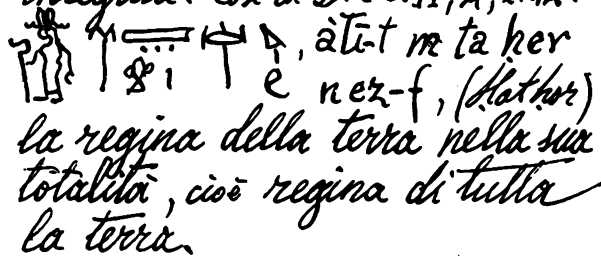 , àti-t m ta her
nez-f, (Hathor)
la regina della terra nella sua
totalità, cioè regina di tutta
la terra.